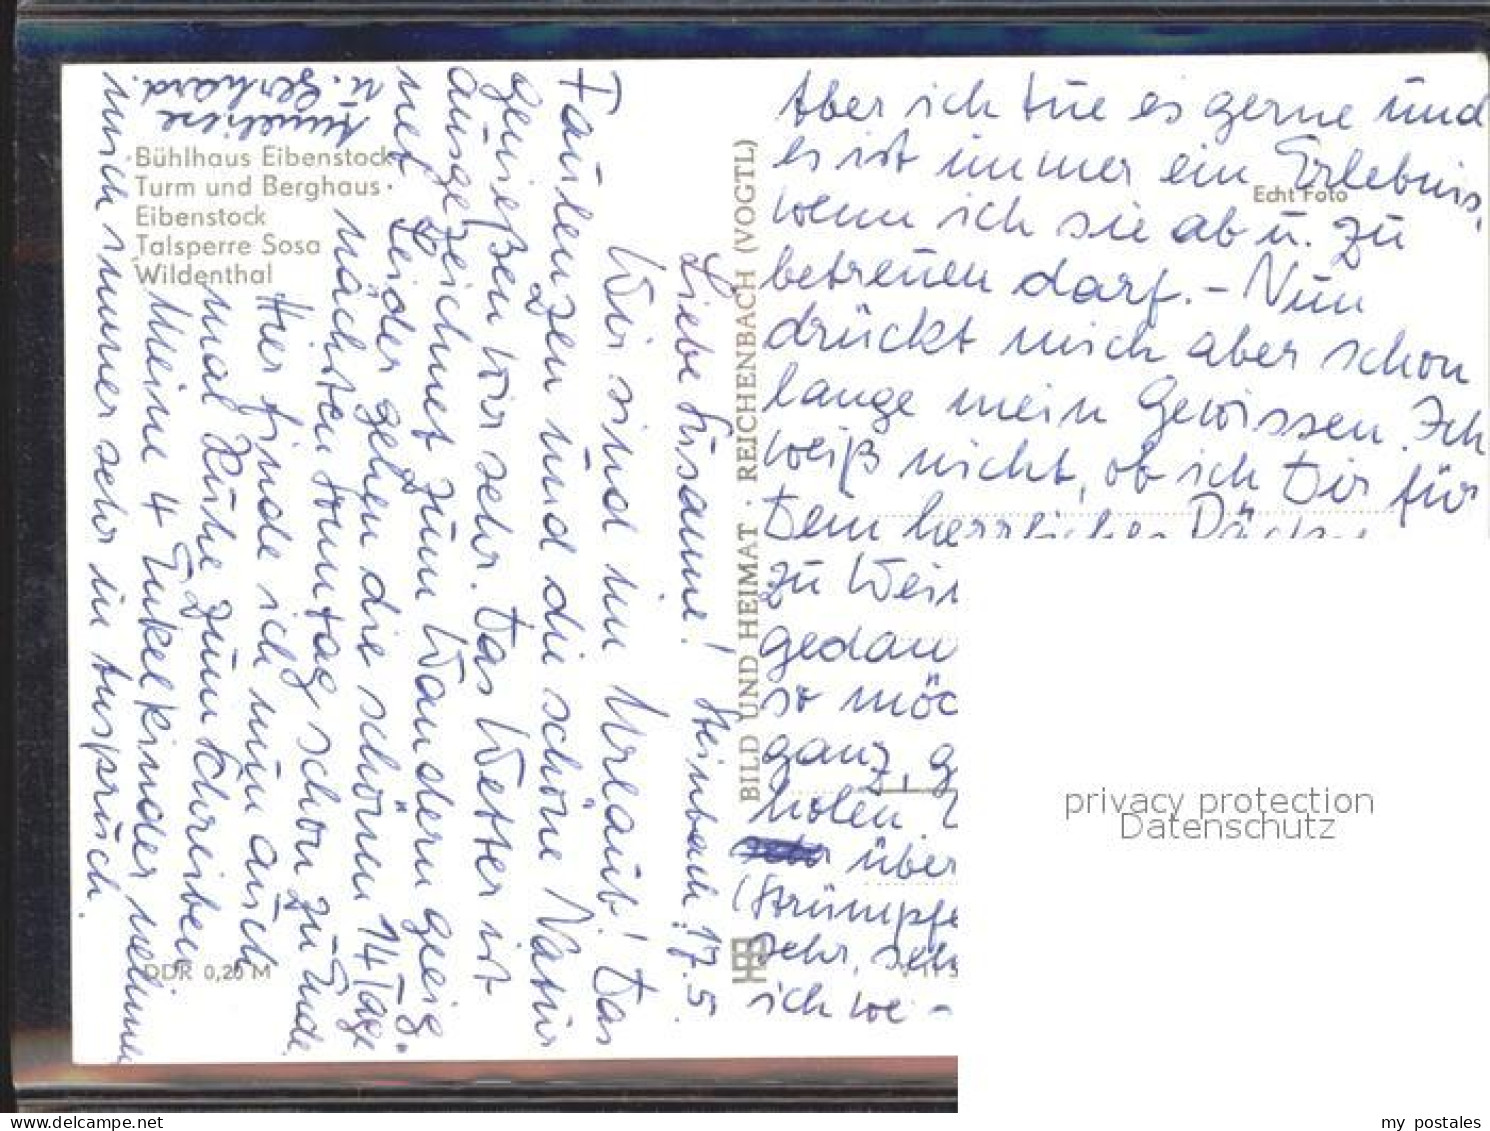 Bühlhaus Eibenstock
Turm und Berghaus
Eibenstock
Talsperre Sosa
Wildenthal
DDR 0,20 M
BILD UND HEIMAT · REICHENBACH (VOGTL)
Echt Foto
Steinbach, 17.5.
Liebe Susanne!
Wir sind im Urlaub! Das
Faulenzen und die schöne Natur
genießen wir sehr. Das Wetter ist
ausgezeichnet zum Wandern geeig-
net. Leider gehen die schönen 14 Tage
nächsten Sonntag schon zu Ende.
Hier finde ich nun auch
mal Ruhe zum Schreiben
Meine 4 Enkelkinder nehmen
mich immer sehr in Anspruch.
Aber ich tue es gerne und
es ist immer ein Erlebnis,
wenn ich sie ab u. zu
betreuen darf. - Nun
drückt mich aber schon
lange mein Gewissen. Ich
weiß nicht, ob ich Dir für
Dein
zu Wein
gedan
so möc
ganz, g
holen.
über
(Strümpfe
sehr, seh
ich we -
u. Gerhard.
privacy protection
Datenschutz
my postales